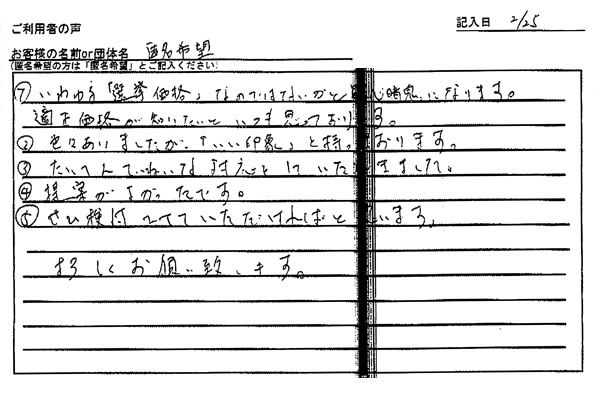 ご利用者の声
記入日 2/25
お客様の名前or団体名 匿名希望
(匿名希望の方は「匿名希望」とご記入ください)
① いわゆる「選挙価格」なのではないかと 暗鬼になります。
適正価格が知りたいと いつも思っております。
② 色々ありましたが、「いい印象」を持って おります。
③ たいへんていねいな対応をしていただきました。
④ 提案がよかったです。
⑤ ぜひ検討 していただければと 思います。
よろしくお願い致します。